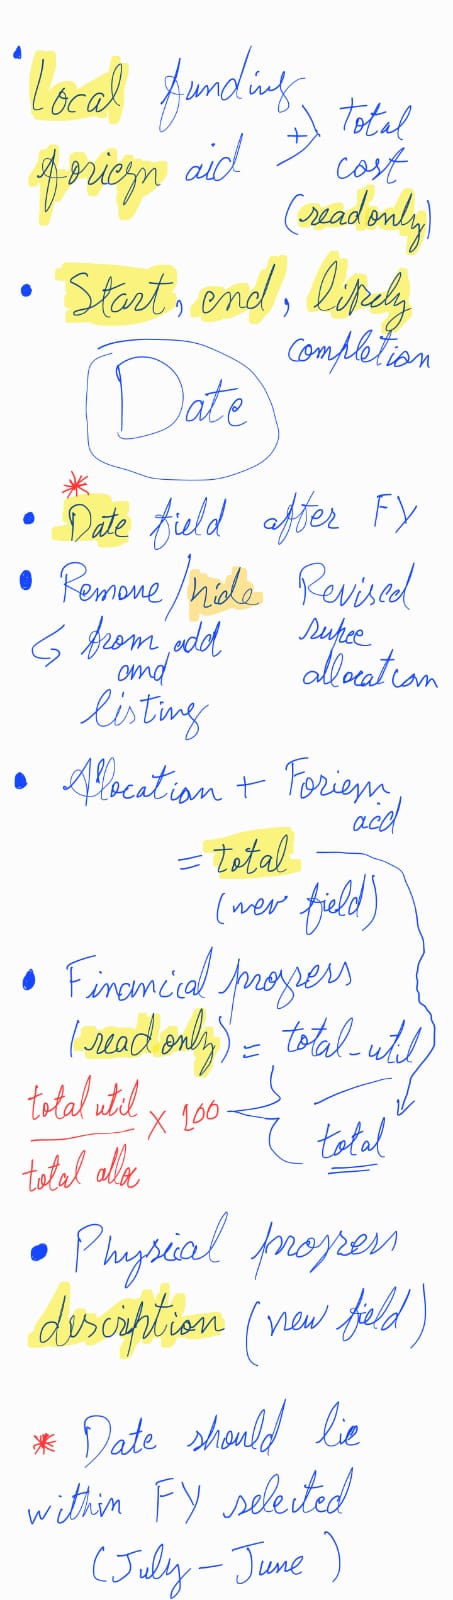 • Local funding
foriegn aid
+ total
cost
(readonly)
• Start, end, likely
completion
Date
*
• Date field after FY
• Remove / hide Revised
from add rupee
and allocation
listing
• Allocation + Foriegn
aid
= total
(new field)
• Financial progress
(read only) = total-util
total
total util × 100
total alloc
• Physical progress
description (new field)
* Date should lie
within FY selected
(July - June)